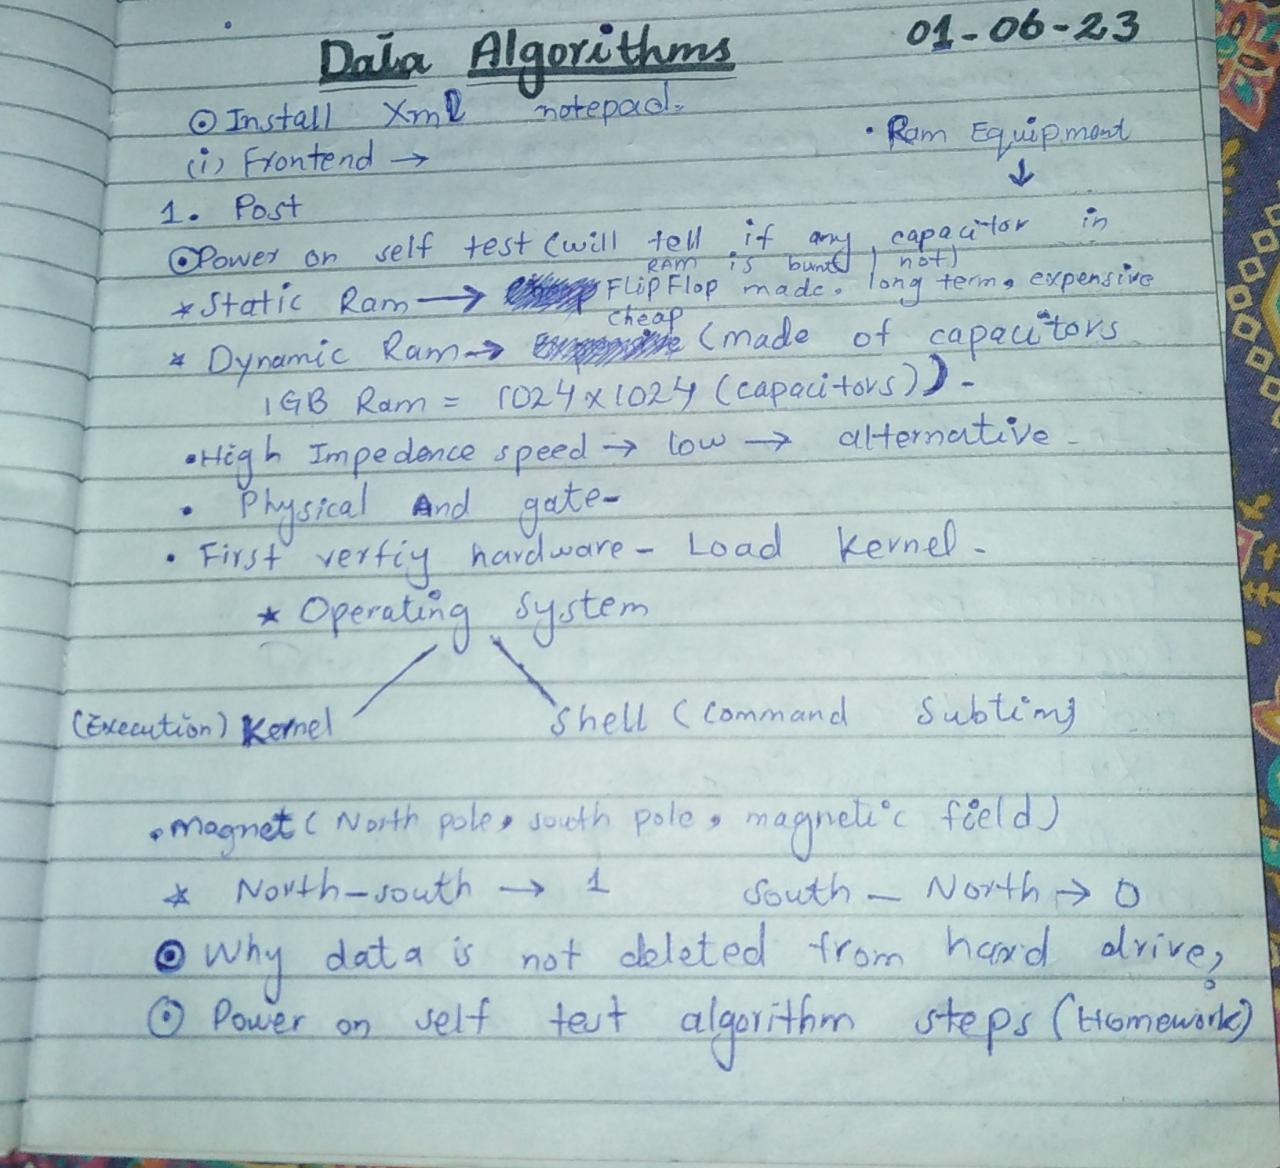 Data Algorithms
01-06-23
Install Xml notepad.
• Ram Equipment
↓
(i) Frontend →
1. Post
Power on self test (will tell if any capacitor in
RAM is bunt, not)
* Static Ram → FlipFlop made. long term, expensive
cheap
* Dynamic Ram → (made of capacitors
1GB Ram = 1024 x 1024 (capacitors)) -
• High Impedence speed → low → alternative -
• Physical And gate-
• First verfiy hardware - Load kernel -
* Operating System
(Execution) Kernel
Shell (Command
• Magnet ( North pole, south pole, magnetic field)
* North-south → 1 South - North → 0
Why data is not deleted from hard drive?
Power on self test algorithm steps (Homework)